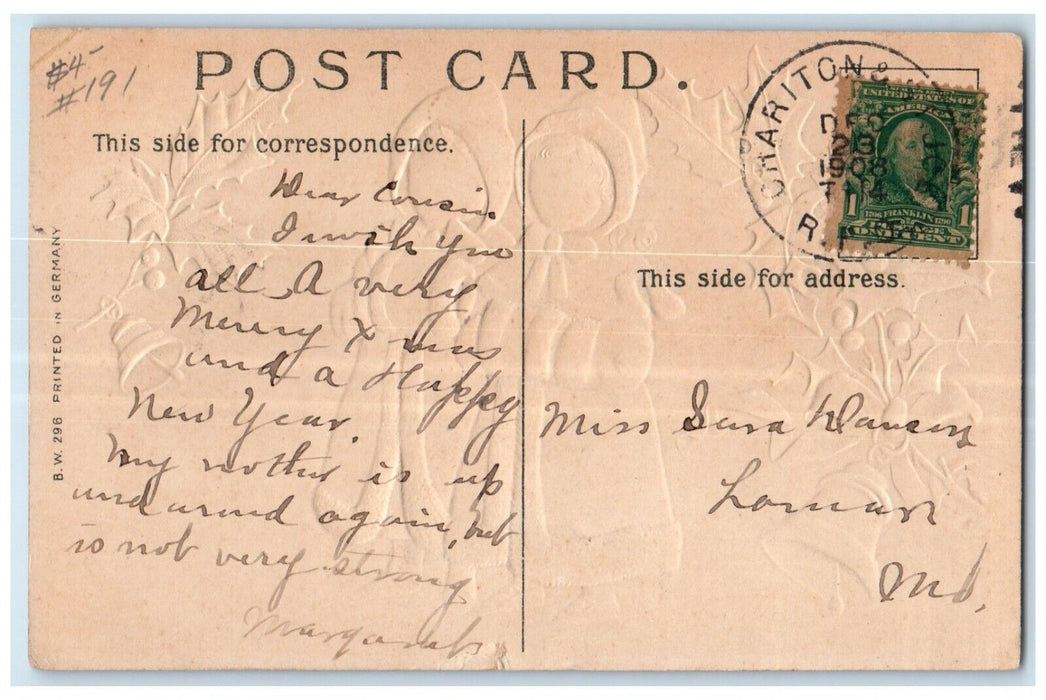 #4-
#191
POST CARD.
This side for correspondence.
Dear Cousin
I wish you
all A very
Merry Xmas
and a Happy
New Year.
My mother is up
and around again, but
is not very strong
B. W. 296 PRINTED IN GERMANY
CHARITON &
DEC
23
1908
R.P.O.
UNITED STATES OF
AMERICA
1 1706 FRANKLIN 1790 1
ONE CENT
This side for address.
Miss
Mo.